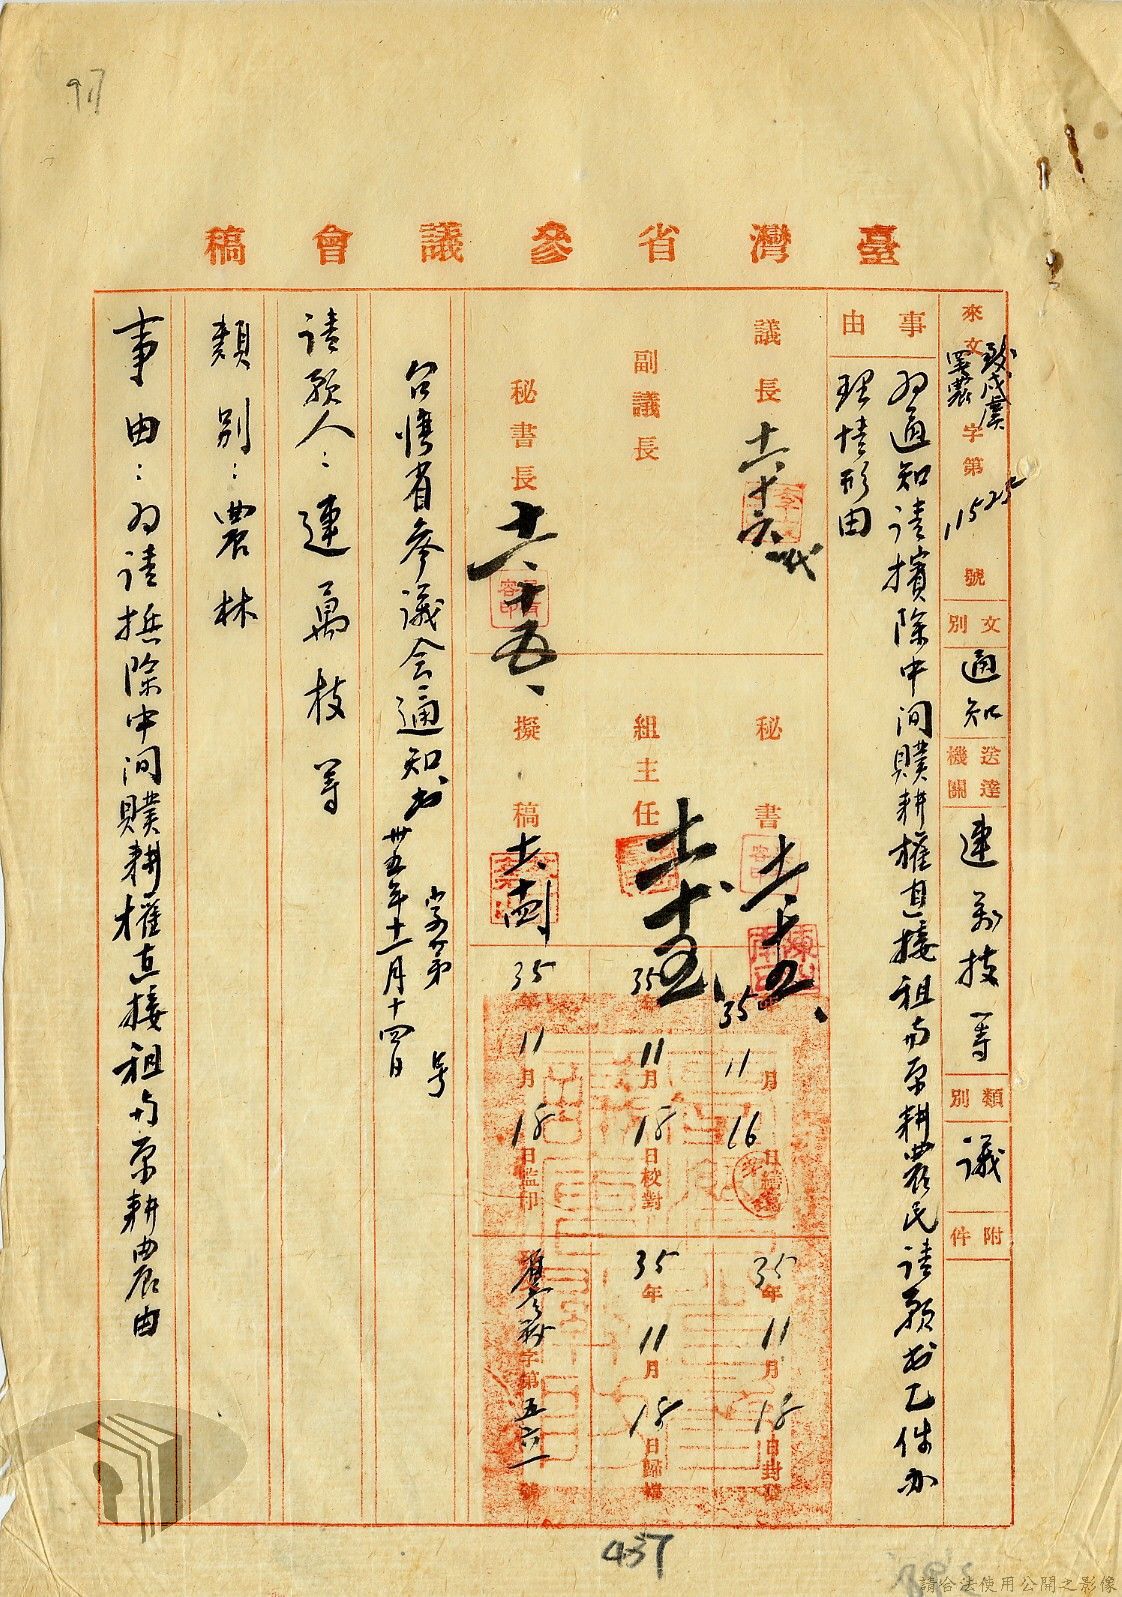 臺灣省參議會稿
來文 字第11525號
文別 通知
送達機關 連萬枝等
類別 議
附件
事由
為通知請擯除中間贌耕權直接租与原耕農民請願書乙件办
理情形由
議長 十一、十六 代
副議長
秘書長 十一、十五、
秘書 十一、十五、
組主任 十一、十五、
擬稿 十一、十四
35年11月16日繕寫
35年11月18日校對
35年11月18日監印
35年11月18日封發
35年11月18日歸檔
字第五六一號
台灣省參議会通知書 字第 号
卅五年十一月十四日
請願人：連萬枝等
類別：農林
事由：為請擯除中間贌耕權直接租与原耕農由
437
97
請合法使用公開之影像